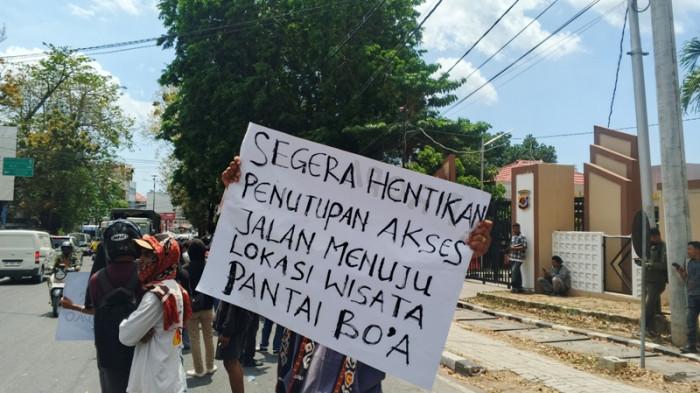 SEGERA HENTIKAN
PENUTUPAN AKSES
JALAN MENUJU
LOKASI WISATA
PANTAI BO'A